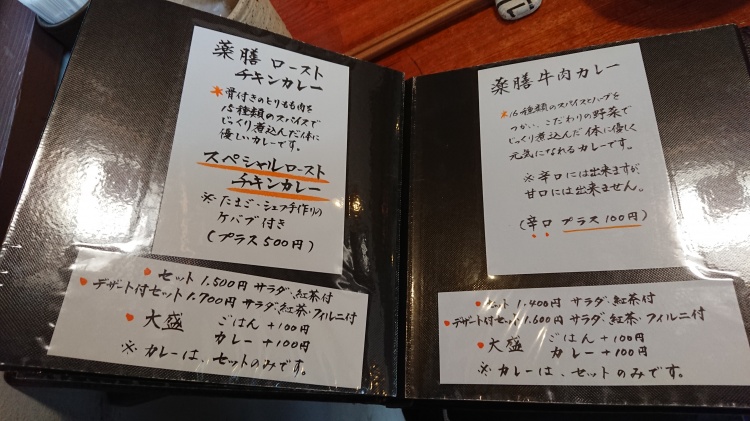 薬膳ロースト
チキンカレー
*骨付きのとりもも肉を
15種類のスパイスで
じっくり煮込んだ体に
優しいカレーです。
スペシャルロースト
チキンカレー
※たまご・シェフ手作りの
ケバブ付き
(プラス500円)
セット 1.500円 サラダ、紅茶付
デザート付セット1.700円 サラダ、紅茶・フィルニ付
大盛 ごはん +100円
カレー +100円
※カレーは、セットのみです。
薬膳牛肉カレー
*15種類のスパイスとハーブを
つかい、こだわりの野菜で
じっくり煮込んだ体に優しく
元気になれるカレーです。
※辛口には出来ますが
甘口には出来ません。
(辛口 プラス100円)
セット 1.400円 サラダ、紅茶付
デザート付セット1.600円 サラダ、紅茶・フィルニ付
大盛 ごはん +100円
カレー +100円
※カレーは、セットのみです。